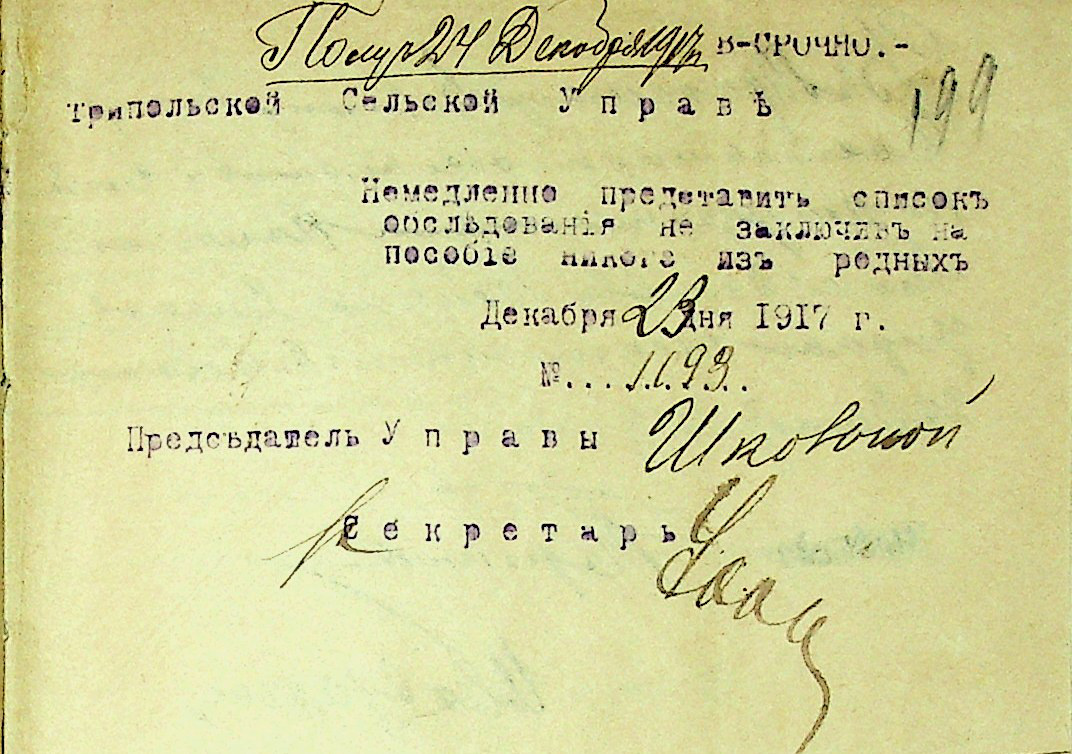 Получ 24 Декабря 1917 В-СРОЧНО.-
199
Трипольской Сельской Управѣ
Немедленно представить списокъ
обслѣдованія не заключивъ на
пособіе никого изъ родныхъ
Декабря 23 дня 1917 г.
№...1193..
Предсѣдатель Управы
Секретарь